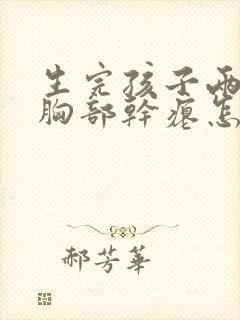 生完孩子兩
胸部幹瘪怎
郝芳華